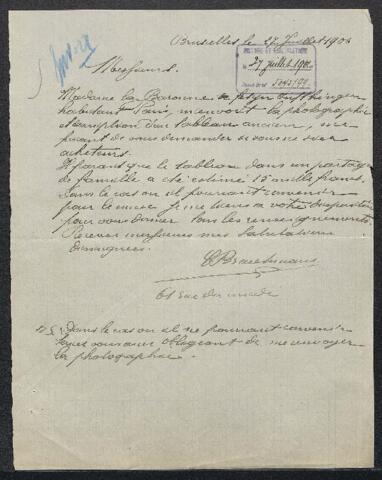 Bruxelles le 27 Juillet 1906
27 Juillet 1906
Messieurs.
Madame la Baronne
habitant Paris, m'envoit la photographie
et description d'un tableau ancien, me
priant de vous demander si vous en êtes
acheteurs.
Il parait que le tableau dans un partage
de famille a été estimé 15 mille francs.
Dans le cas ou il pourrait convenir
pour le musée je me tiens a votre disposition
pour vous donner tous les renseignements.
Recevez messieurs mes salutations
distinguées.
61 rue du
Dans le cas ou il ne pourrait convenir
soyez vous assez obligeant de me renvoyer
la photographie.